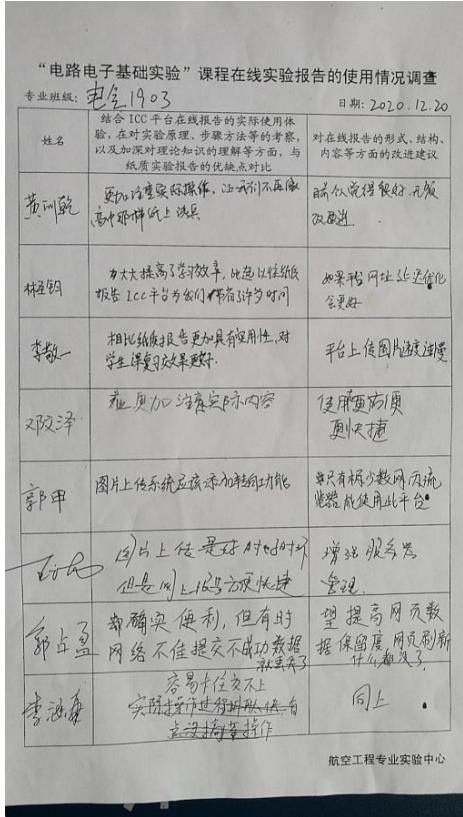 “电路电子基础实验”课程在线实验报告的使用情况调查
专业班级：电气1903
日期：2020.12.20
姓名
结合 ICC 平台在线报告的实际使用体
验，在对实验原理、步骤方法等的考察，
以及加深对理论知识的理解等方面，与
纸质实验报告的优缺点对比
对在线报告的形式、结构、
内容等方面的改进建议
更加注重实际操作，让我们不再像
高中那样纸上谈兵
觉得很好，无须
改进
大大提高了学习效率，比起以往纸
报告ICC平台为我们节省了许多时间
如果平台网址
会更好
李敬一
相比纸质报告更加具有实用性，对
学生课复习效果更好.
平台上传图片速度过慢
邓文泽
更加注重实际内容
使用更方便
更快捷
郭甲
图片上传系统应该添加转向功能
只有极少数网页浏
览器能使用此平台
图片上传是好时好坏
但是网上报告方便快捷
增强服务器
管理.
郭占盈
确实便利，但有时
网络不佳提交不成功数据
就丢失了
望提高网页数
据保留度，网页刷新
什么都没了
容易卡住交不上
同上
航空工程专业实验中心